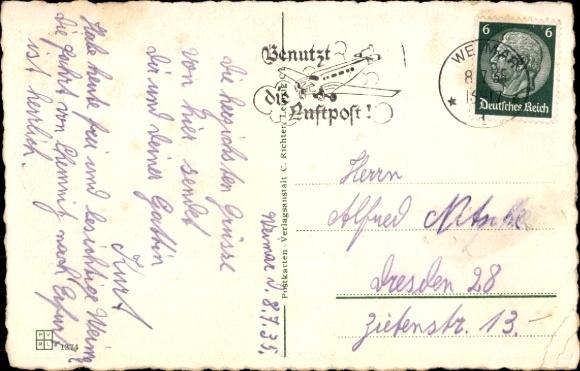 Weimar d. 8.7.35.
Die herzichsten Grüsse
von hier sendet
Dir und Deiner Gattin
Kurt
Habe heute frei und besichtige Weimar
Die Fahrt von Chemnitz nach Erfurt
ist herrlich.
Postkarten-Verlagsanstalt C. Richter, Leipzig C
Benutzt
die
Luftpost!
WEIMAR
8.7.35
6 6
Deutsches Reich
Herrn
Alfred Nitsche
Dresden 28
Zietenstr. 13.-
P V
R L
1374